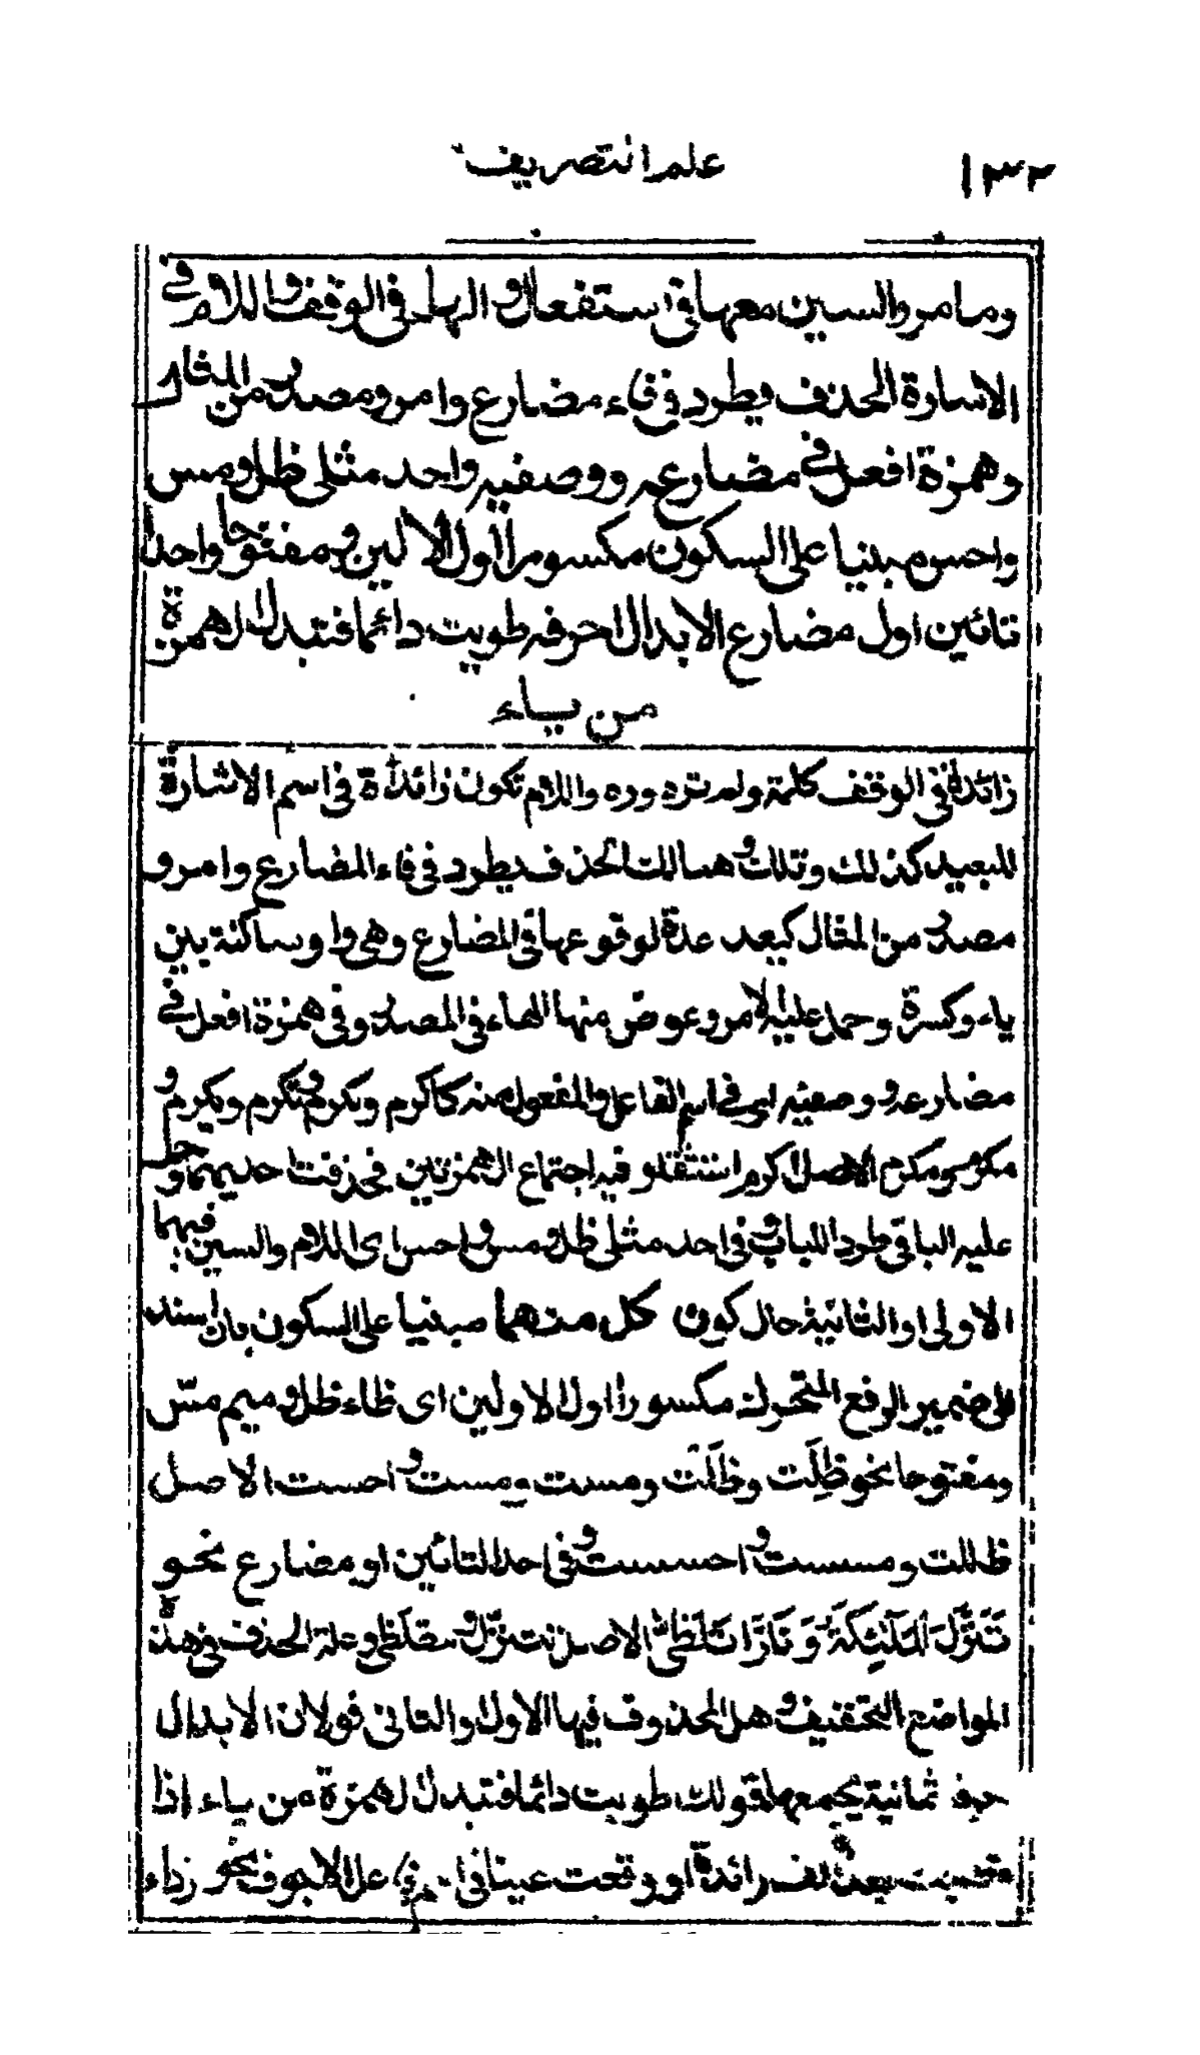 علم التصريف ١٣٢
وما مر والسين معها في استفعال والهاء في الوقف واللام في
الاشارة الحذف يطرد في فاء مضارع وامر ومصدر من المثال
وهمزة افعل في مضارعه ووصفيه واحد مثلى ظل ومس
واحس مبنيا على السكون مكسورا اول الاولين ومفتوحا واحدا
تائين اول مضارع الابدال احرفه طويت دائما فتبدل الهمزة
من ياء
زائدة في الوقف كلمة ولم تره وره واللام تكون زائدة في اسم الاشارة
للبعيد كذلك وتلك وهنالك الحذف يطرد في فاء المضارع وامر و
مصدر من المثال كيعد عدة لوقوعها في المضارع وهي واو ساكنة بين
ياء وكسرة وحمل عليه الامر وعوض منها الهاء في المصدر وفي همزة افعل في
مضارعه ووصفيه اى في اسم الفاعل والمفعول منه كاكرم ونكرم وتكرم ويكرم و
مكرم ومكرم الاصل اكرم استثقلو فيه اجتماع الهمزتين فحذفت احديهما وحمل
عليه الباقي طرد اللباب وفي احد مثلى ظل ومس واحس اى اللام والسين فيهما
الاولى او الثانية حال كون كل منهما مبنيا على السكون بان اسند
الى ضمير الرفع المتحرك مكسورا اول الاولين اى ظاء ظل وميم مس
ومفتوحا نحو ظِلت وظَلت ومست ومست واحست الاصل
ظللت ومسست واحسست وفي احد التائين او مضارع نحو
تَنَزَّلُ الْمَلٰئِكَةُ وَنَارًا تَلَظّٰى الاصل تتنزل وتتلظى وعلة الحذف في هذه
المواضع التخفيف وهل المحذوف فيها الاول او الثاني قولان الابدال
حرفه ثمانية يجمعها قولك طويت دائما فتبدل الهمزة من ياء اذا
بعد الف زائدة او وقعت عينا في فاعل الاجوف نحو رداء